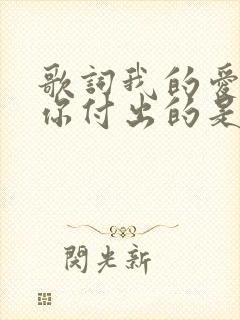 歌詞我的愛
你付出的是
閱光新